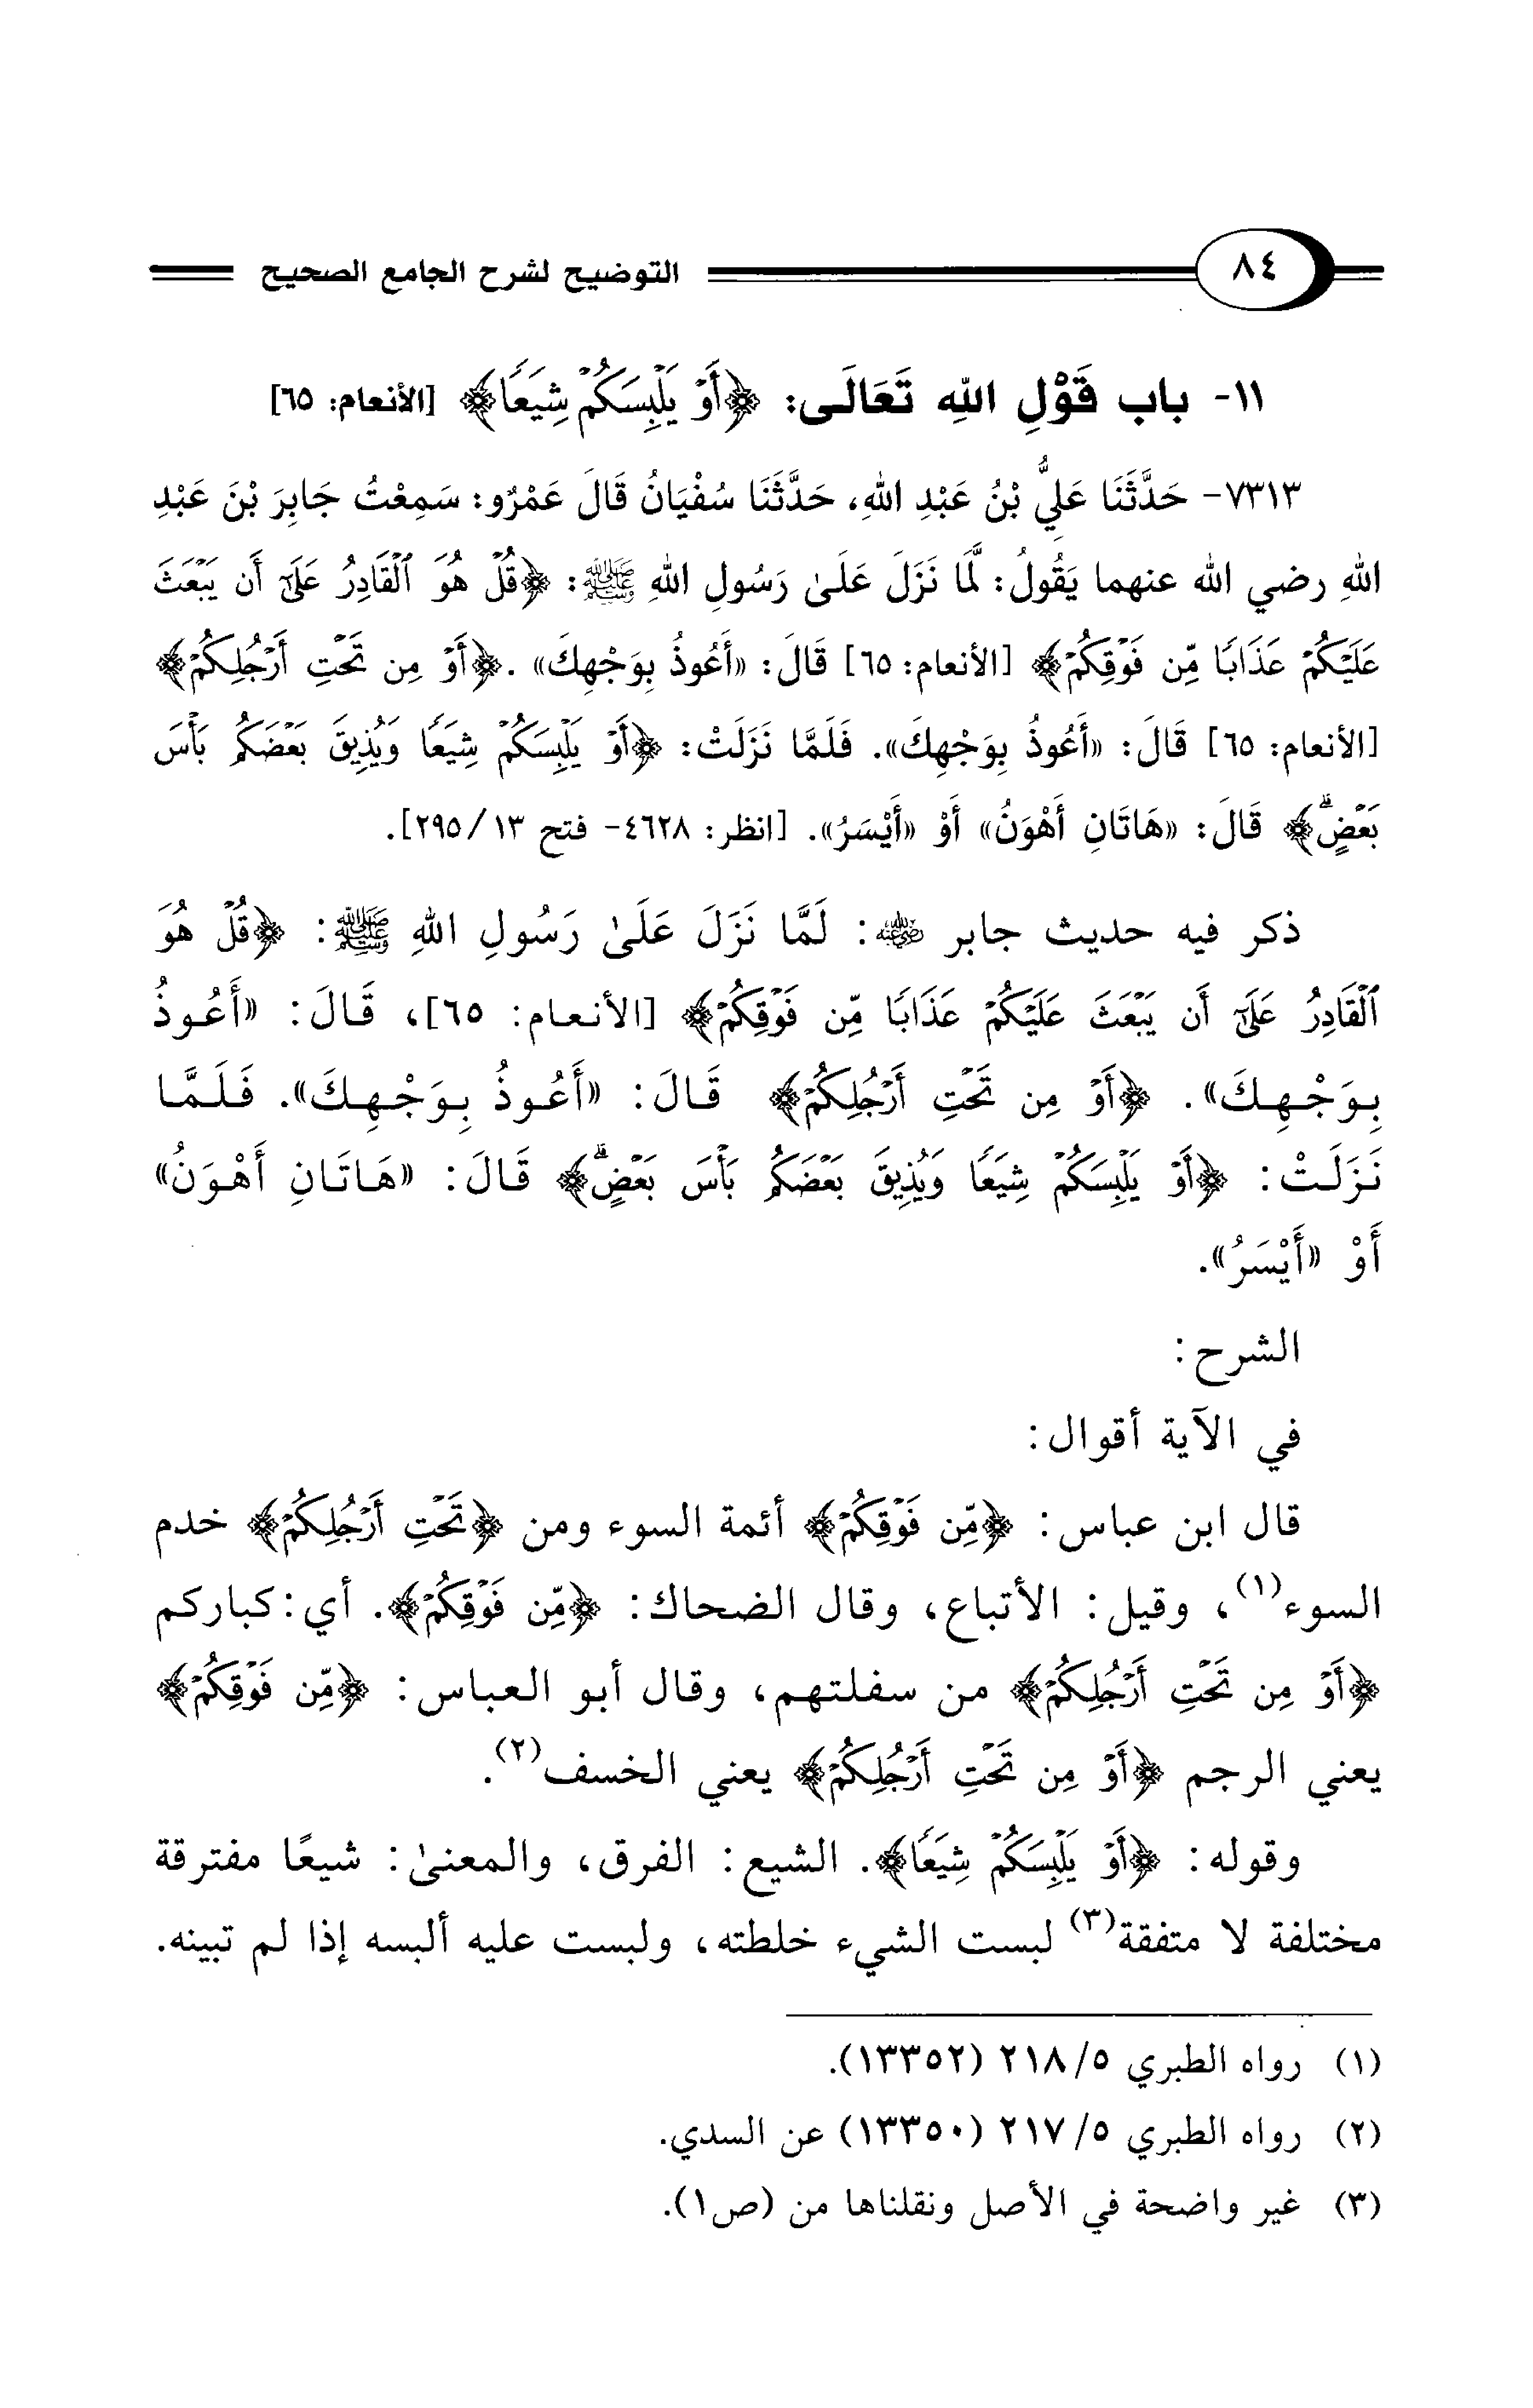 ٨٤ التوضيح لشرح الجامع الصحيح
١١- باب قَوْلِ اللهِ تَعَالَى: ﴿أَوْ يَلْبِسَكُمْ شِيَعًا﴾ [الأنعام: ٦٥]
٧٣١٣- حَدَّثَنَا عَلِيُّ بْنُ عَبْدِ اللهِ، حَدَّثَنَا سُفْيَانُ قَالَ عَمْرٌو: سَمِعْتُ جَابِرَ بْنَ عَبْدِ
اللهِ رضي الله عنهما يَقُولُ: لَمَّا نَزَلَ عَلَىٰ رَسُولِ اللهِ ﷺ: ﴿قُلْ هُوَ ٱلْقَادِرُ عَلَىٰٓ أَن يَبْعَثَ
عَلَيْكُمْ عَذَابًا مِّن فَوْقِكُمْ﴾ [الأنعام: ٦٥] قَالَ: «أَعُوذُ بِوَجْهِكَ» .﴿أَوْ مِن تَحْتِ أَرْجُلِكُمْ﴾
[الأنعام: ٦٥] قَالَ: «أَعُوذُ بِوَجْهِكَ». فَلَمَّا نَزَلَتْ: ﴿أَوْ يَلْبِسَكُمْ شِيَعًا وَيُذِيقَ بَعْضَكُم بَأْسَ
بَعْضٍ ۗ﴾ قَالَ: «هَاتَانِ أَهْوَنُ» أَوْ «أَيْسَرُ». [انظر: ٤٦٢٨- فتح ١٣/ ٢٩٥].
ذكر فيه حديث جابر ﵁: لَمَّا نَزَلَ عَلَىٰ رَسُولِ اللهِ ﷺ: ﴿قُلْ هُوَ
ٱلْقَادِرُ عَلَىٰٓ أَن يَبْعَثَ عَلَيْكُمْ عَذَابًا مِّن فَوْقِكُمْ﴾ [الأنعام: ٦٥]، قَالَ: «أَعُوذُ
بِوَجْهِكَ». ﴿أَوْ مِن تَحْتِ أَرْجُلِكُمْ﴾ قَالَ: «أَعُوذُ بِوَجْهِكَ». فَلَمَّا
نَزَلَتْ: ﴿أَوْ يَلْبِسَكُمْ شِيَعًا وَيُذِيقَ بَعْضَكُم بَأْسَ بَعْضٍ ۗ﴾ قَالَ: «هَاتَانِ أَهْوَنُ»
أَوْ «أَيْسَرُ».
الشرح:
في الآية أقوال:
قال ابن عباس: ﴿مِّن فَوْقِكُمْ﴾ أئمة السوء ومن ﴿تَحْتِ أَرْجُلِكُمْ﴾ خدم
السوء(١)، وقيل: الأتباع، وقال الضحاك: ﴿مِّن فَوْقِكُمْ﴾. أي: كباركم
﴿أَوْ مِن تَحْتِ أَرْجُلِكُمْ﴾ من سفلتهم، وقال أبو العباس: ﴿مِّن فَوْقِكُمْ﴾
يعني الرجم ﴿أَوْ مِن تَحْتِ أَرْجُلِكُمْ﴾ يعني الخسف(٢).
وقوله: ﴿أَوْ يَلْبِسَكُمْ شِيَعًا﴾. الشيع: الفرق، والمعنىٰ: شيعًا مفترقة
مختلفة لا متفقة(٣) لبست الشيء خلطته، ولبست عليه ألبسه إذا لم تبينه.
(١) رواه الطبري ٥/ ٢١٨ (١٣٣٥٢).
(٢) رواه الطبري ٥/ ٢١٧ (١٣٣٥٠) عن السدي.
(٣) غير واضحة في الأصل ونقلناها من (ص١).